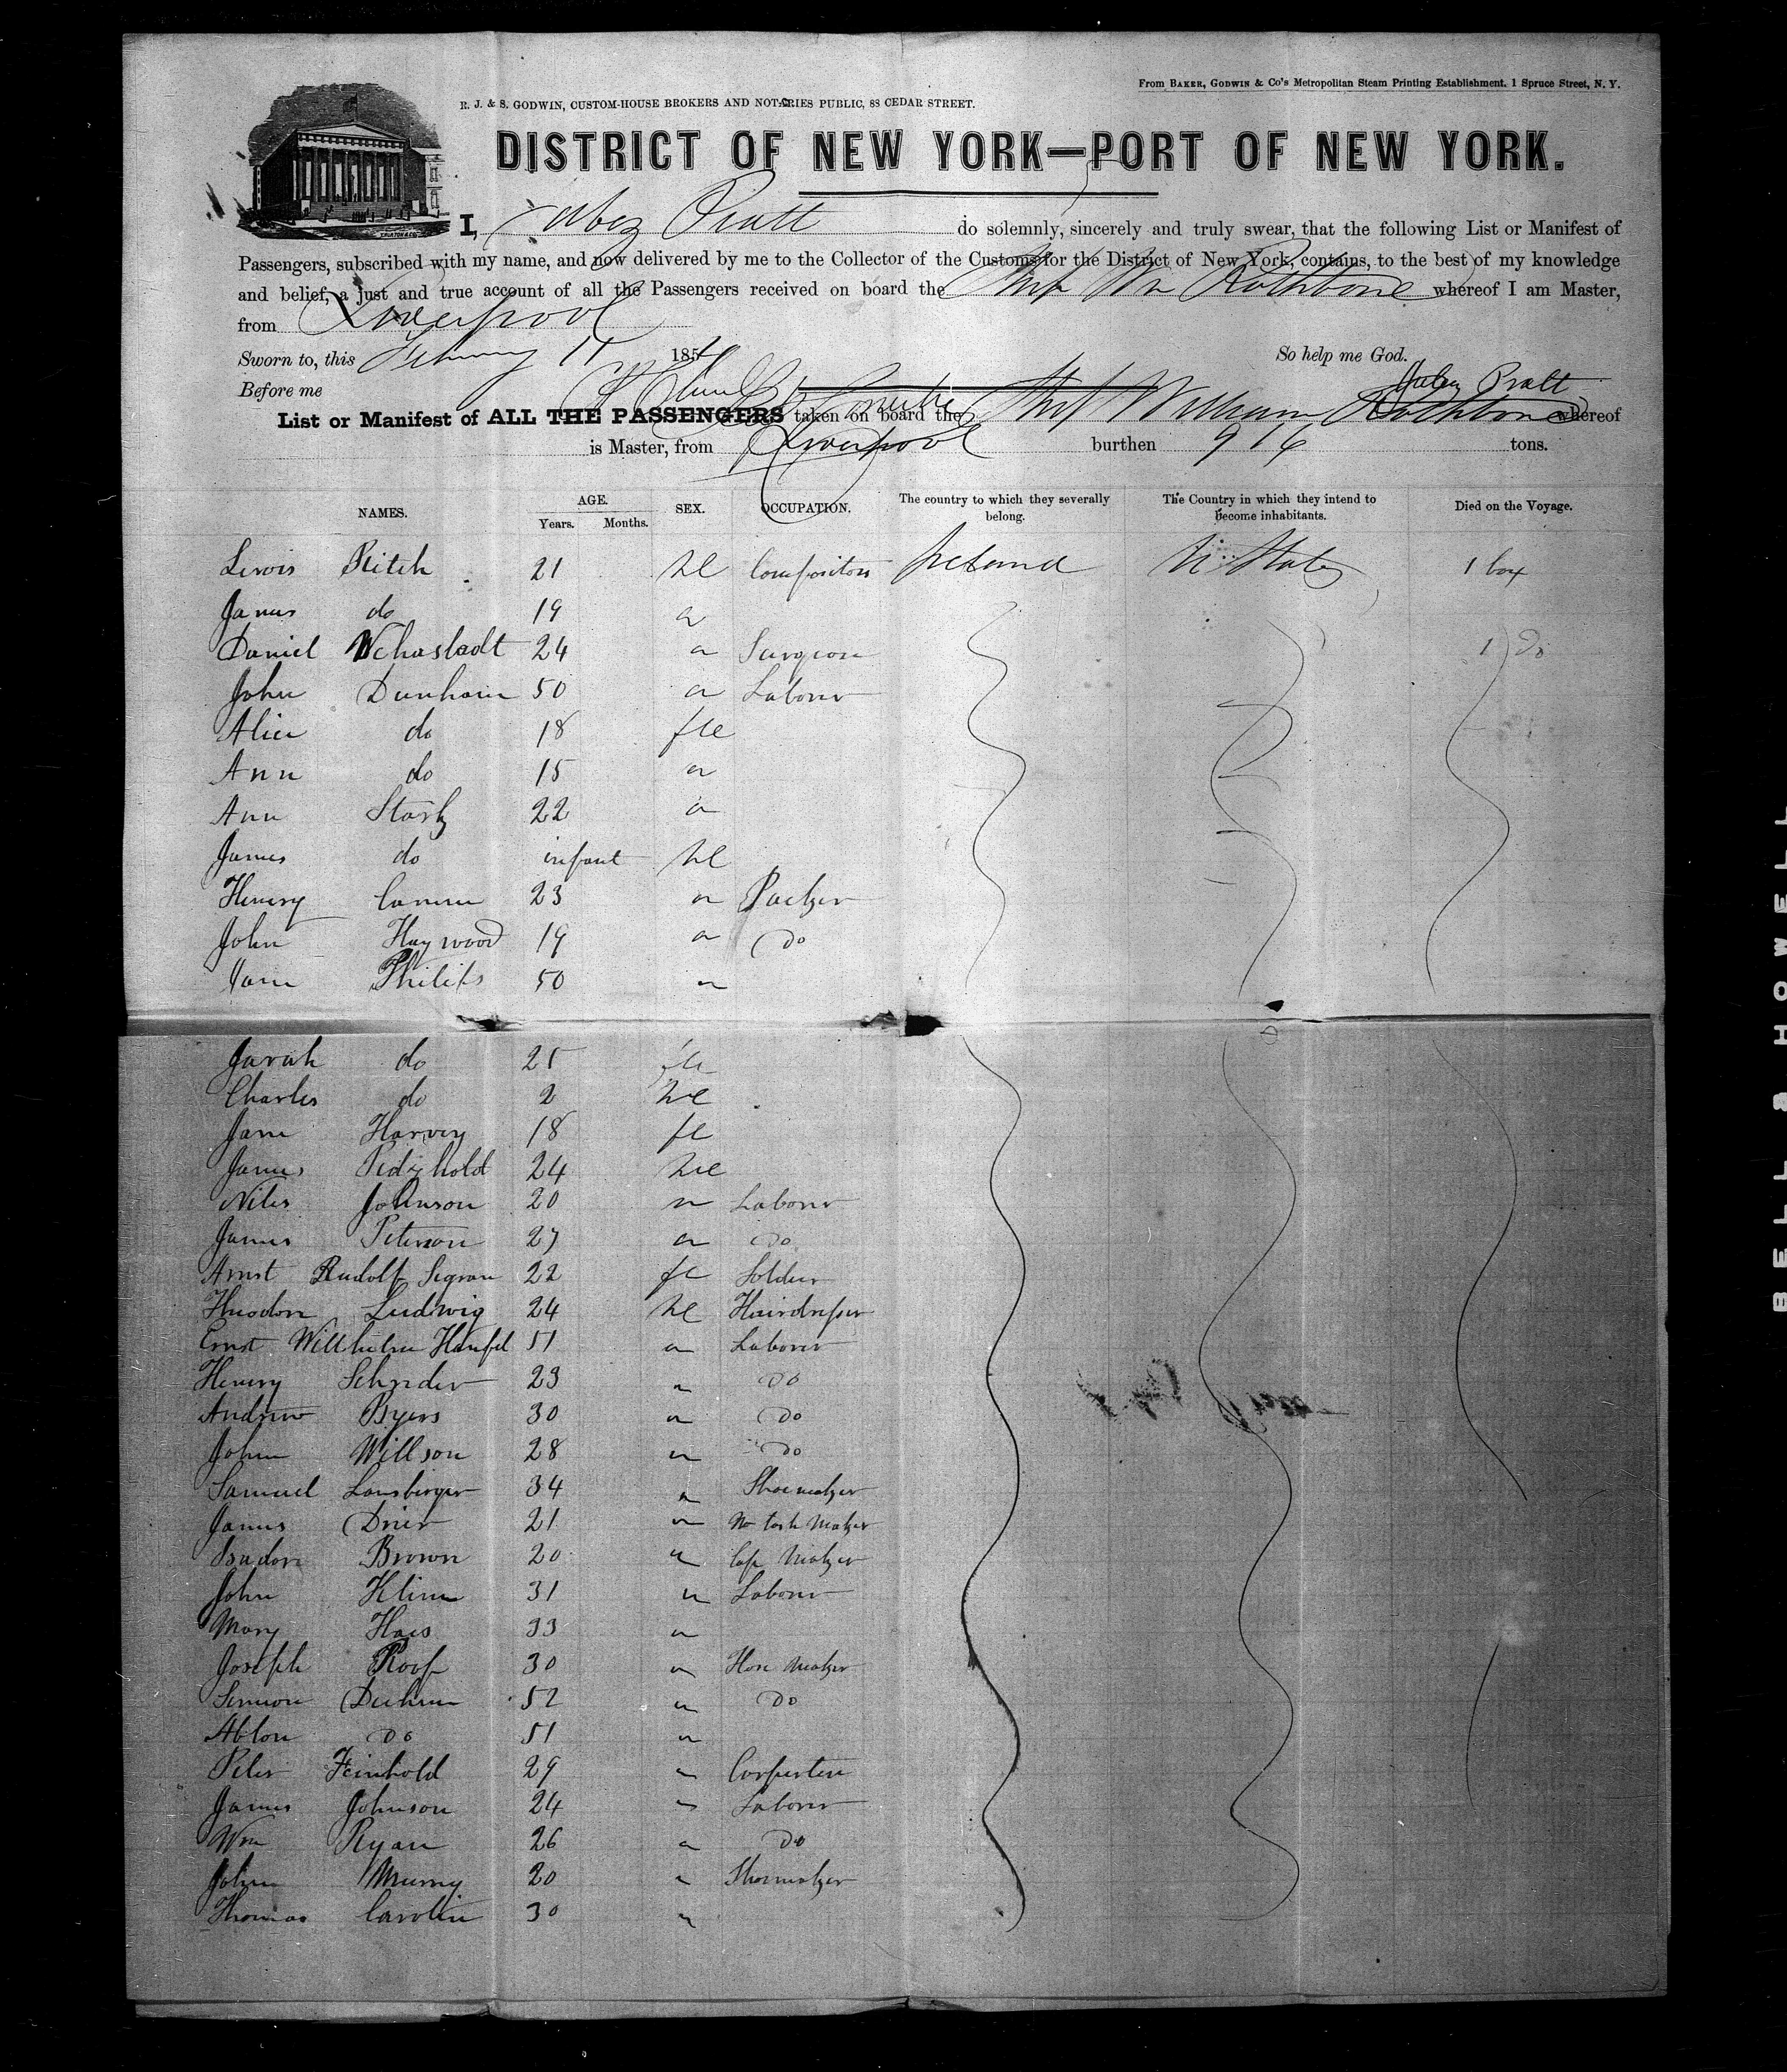 From BAKER, GODWIN & Co's Metropolitan Steam Printing Establishment, 1 Spruce Street, N. Y.
R. J. & S. GODWIN, CUSTOM-HOUSE BROKERS AND NOTARIES PUBLIC, 88 CEDAR STREET.
DISTRICT OF NEW YORK—PORT OF NEW YORK.
I, Jabez Pratt do solemnly, sincerely and truly swear, that the following List or Manifest of
Passengers, subscribed with my name, and now delivered by me to the Collector of the Customs for the District of New York, contains, to the best of my knowledge
and belief, a just and true account of all the Passengers received on board the Ship Wm Rathbone whereof I am Master,
from Liverpool
Sworn to, this February 11 1854 So help me God.
Before me Jabez Pratt
List or Manifest of ALL THE PASSENGERS taken on board the Ship William Rathbone whereof
is Master, from Liverpool burthen 916 tons.
NAMES. AGE. Years. Months. SEX. OCCUPATION. The country to which they severally belong. The Country in which they intend to become inhabitants. Died on the Voyage.
Lewis Ritch 21 Me Compositor Ireland U. States 1 box
James do 19 "
Daniel 24 " Surgeon 1 Do
John Dunham 50 " Labour
Alice do 18 fle
Ann do 15 "
Ann Stark 22 "
James do infant Me
Henery 23 " Packer
John Haywood 19 " Do
Philips 50 "
Sarah do 25 fle
Charles do 2 Me
Jane Harvey 18 fe
James 24 Me
Niles Johnson 20 " Labour
James Peterson 27 " Do
Arnst Rudolf 22 fe Soldier
Theodore Ludwig 24 Me Hairdresser
Ernst Willhelm 51 " Labour
Henery Schnder 23 " Do
Andrew Byers 30 " Do
John Willson 28 " Do
Samuel Lansberger 34 " Shoemaker
James Drier 21 " Maker
Isadore Brown 20 " Cap Maker
John Kline 31 " Labour
Mary Haes 33 "
Joseph Roof 30 " Hose Maker
52 " Do
Do 51 "
Peter Feinhold 29 " Carpenter
James Johnson 24 " Labour
Wm Ryan 26 " Do
John Murry 20 " Shoemaker
Thomas Carolin 30 "
BELL & HOWELL